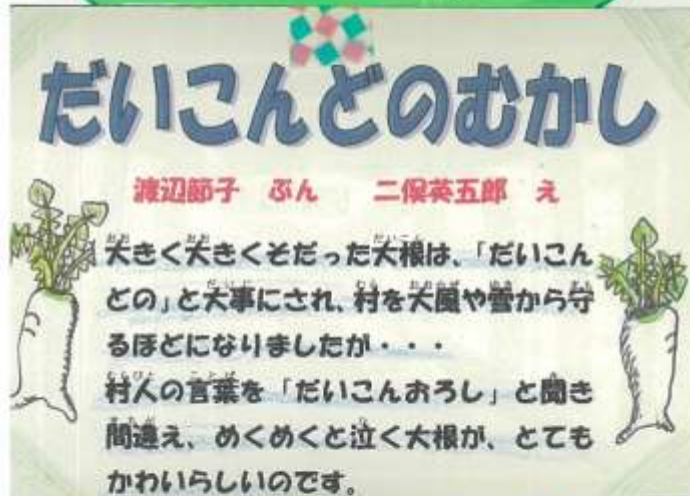 だいこんどのむかし
渡辺節子 ぶん 二俣英五郎 え
大きく大きくそだった大根は、「だいこん
どの」と大事にされ、村を大風や雪から守
るほどになりましたが・・・
村人の言葉を「だいこんおろし」と聞き
間違え、めくめくと泣く大根が、とても
かわいらしいのです。